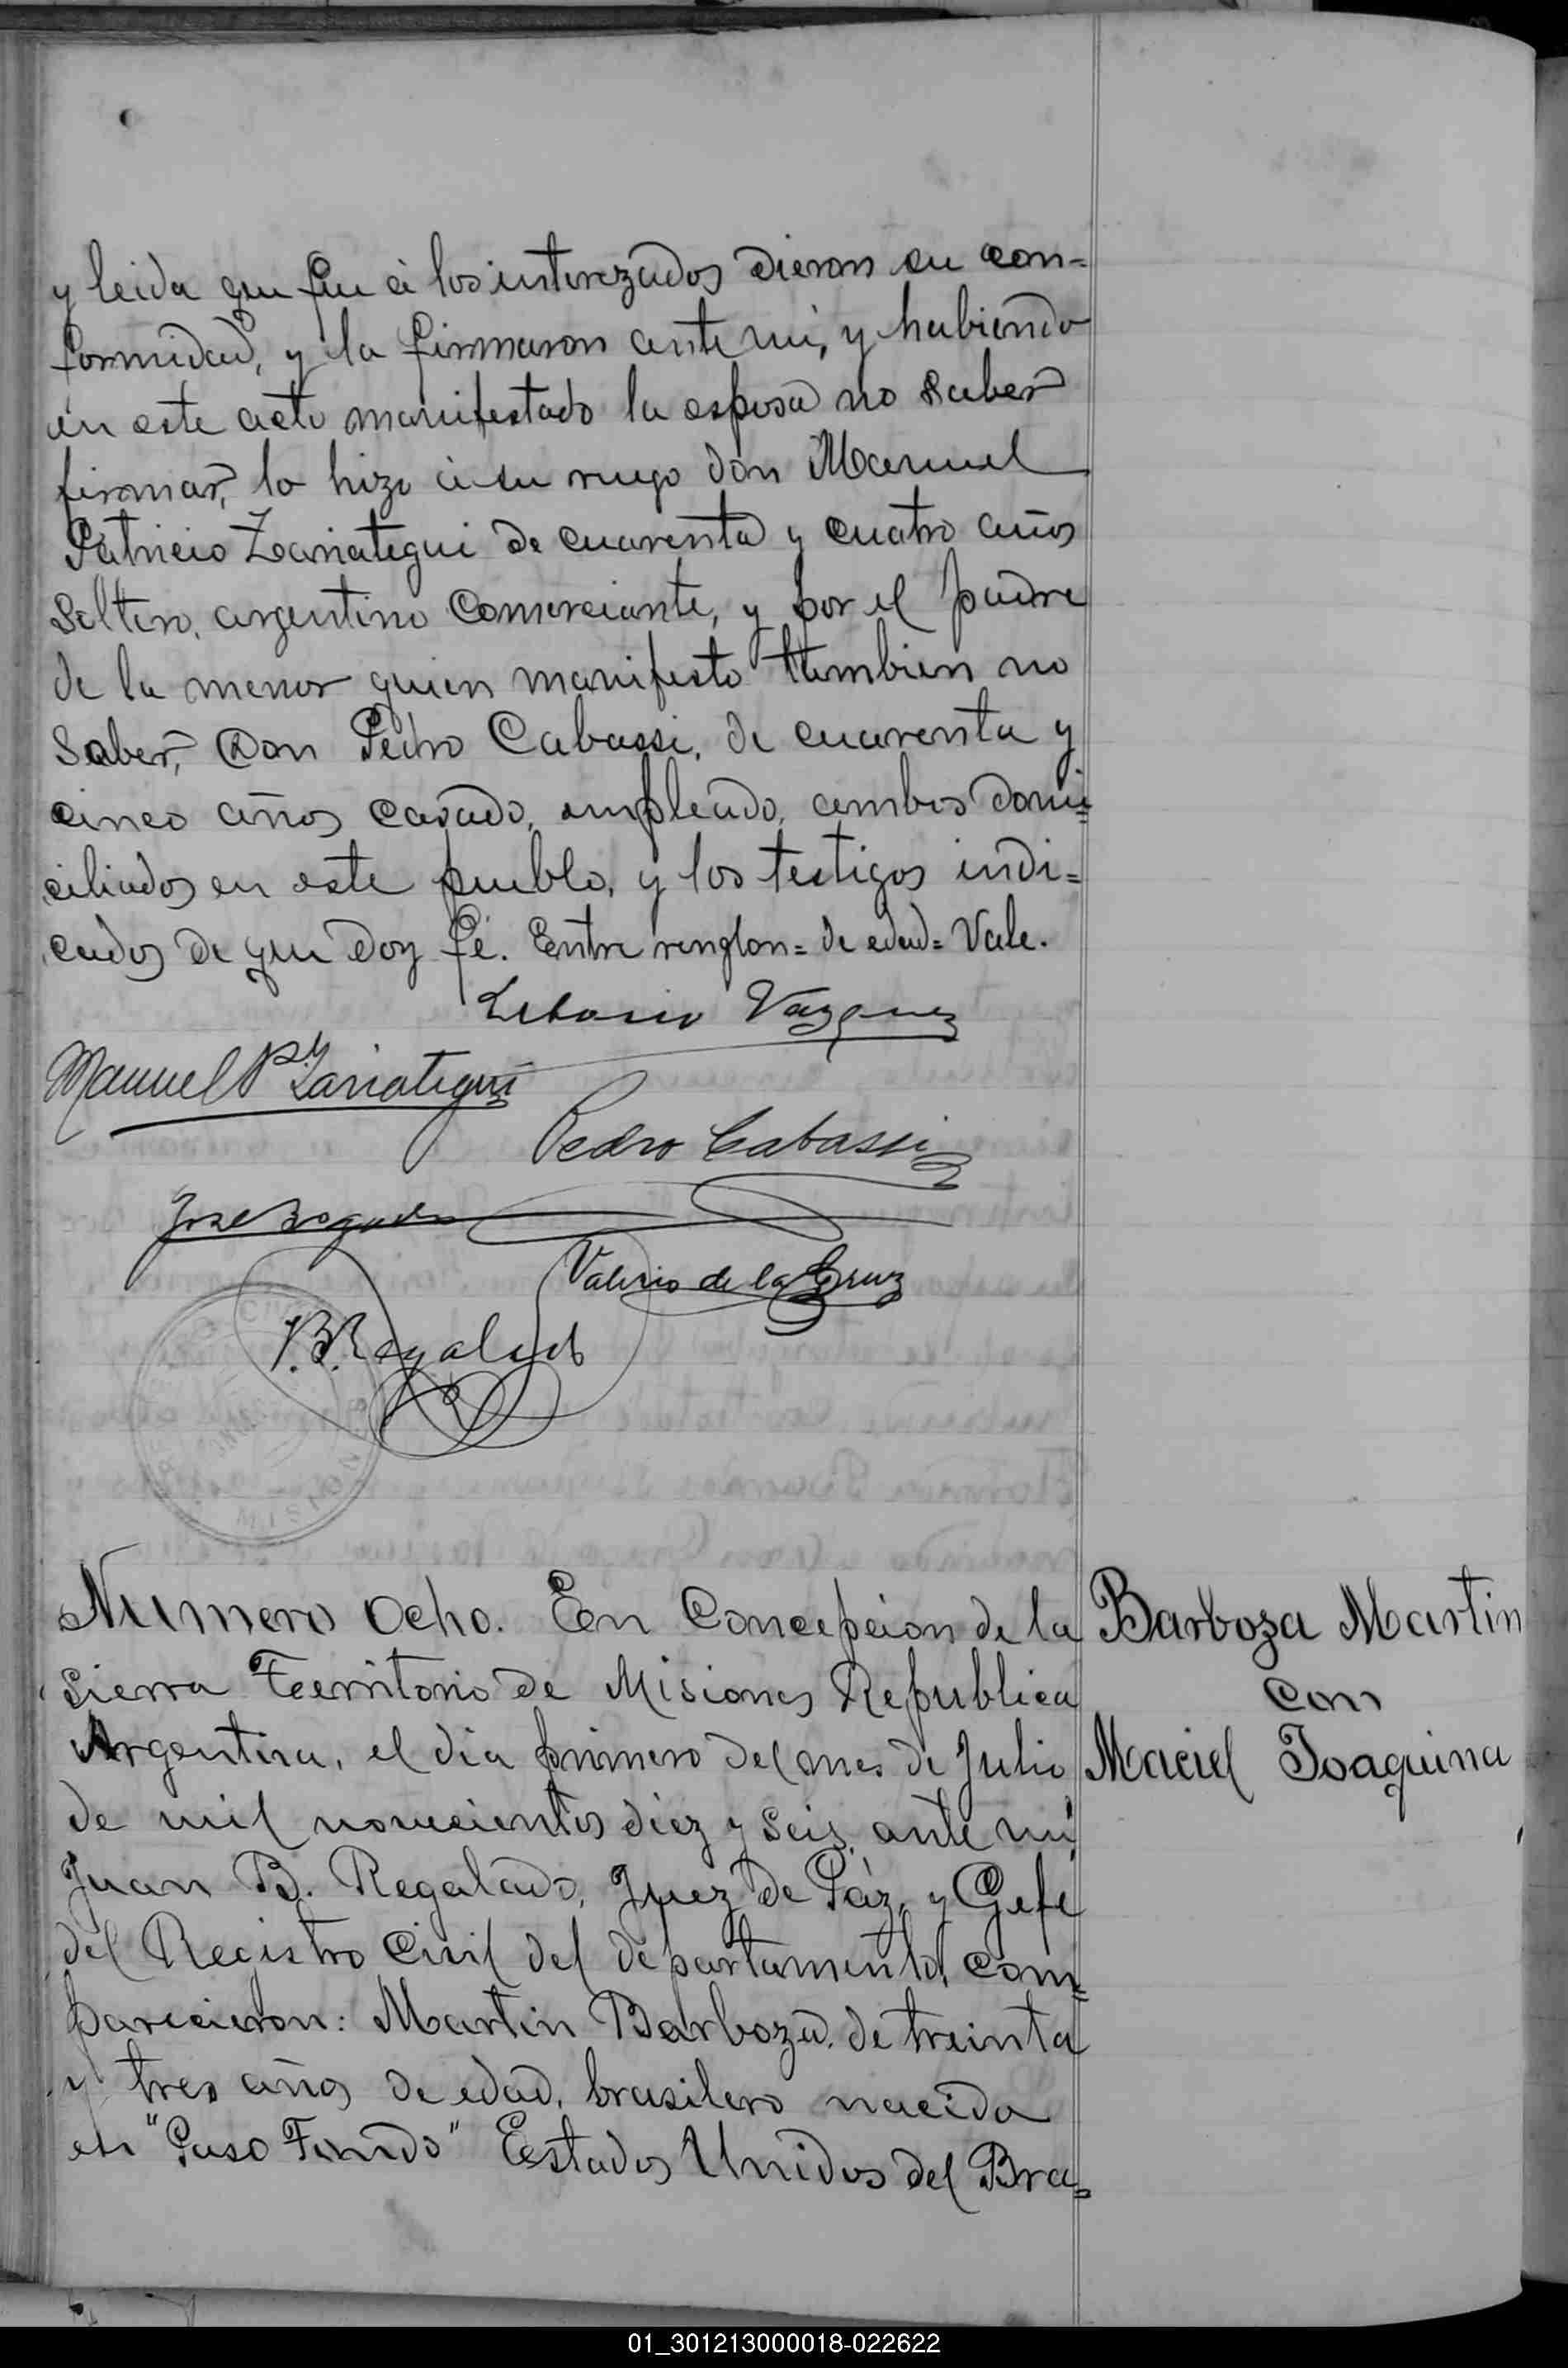 y leida que fue á los interezados dieron su con=
formidad, y la firmaron ante mi, y habiendo
en este acto manifestado la esposa no saber
firmar, lo hizo á su ruego don Manuel
Patricio Zariategui de cuarenta y cuatro años
Soltero, argentino Comerciante, y por el padre
de la menor quien manifesto tambien no
Saber, Don Pedro Cabassi, de cuarenta y
cinco años casado, empleado, ambos domi=
ciliados en este pueblo, y los testigos indi=
cados de que doy fé. Entre renglon= de edad= Vale.
Liborio Vazquez
Manuel P. Zariategui
Pedro Cabassi
Jose
Valerio de la Cruz
J. B. Regalado
MISIONES
Numero Ocho. En Concepcion de la
Sierra Territorio de Misiones Republica
Argentina, el dia primero del mes de Julio
de mil novecientos diez y seis, ante mi,
Juan B. Regalado, Juez de Páz, y Gefe
del Registro Civil del departamento, com=
parecieron: Martin Barboza, de treinta
y tres años de edad, brasilero nacido
en "Paso Fundo" Estados Unidos del Bra=
Barboza Martin
con
Maciel Joaquina
01_301213000018-022622